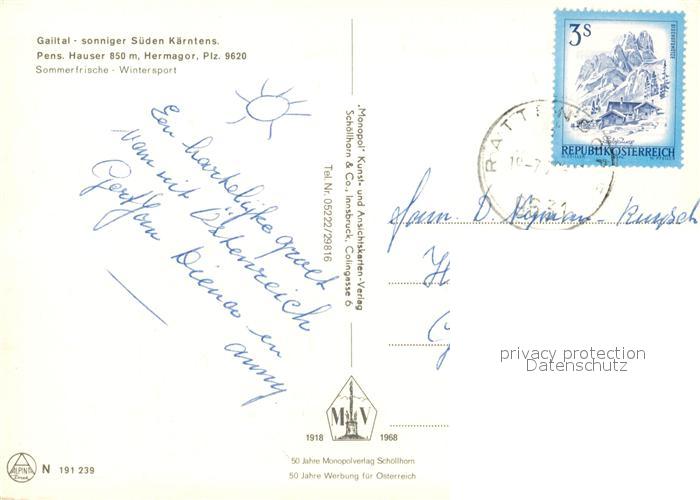 Gailtal - sonniger Süden Kärntens.
Pens. Hauser 850 m, Hermagor, Plz. 9620
Sommerfrische - Wintersport
Een hartelijke groet
van uit Östenreich
Gert Jan Dienco en
anny
„Monopol" Kunst- und Ansichtskarten-Verlag
Schöllhorn & Co., Innsbruck, Colingasse 6
Tel. Nr. 05222/29816
3S
BISCHOFSMÜTZE
REPUBLIK ÖSTERREICH
RATTEN
Fam. D.
privacy protection
Datenschutz
M V
1918 1968
50 Jahre Monopolverlag Schöllhorn
50 Jahre Werbung für Österreich
ALPINE
N 191 239